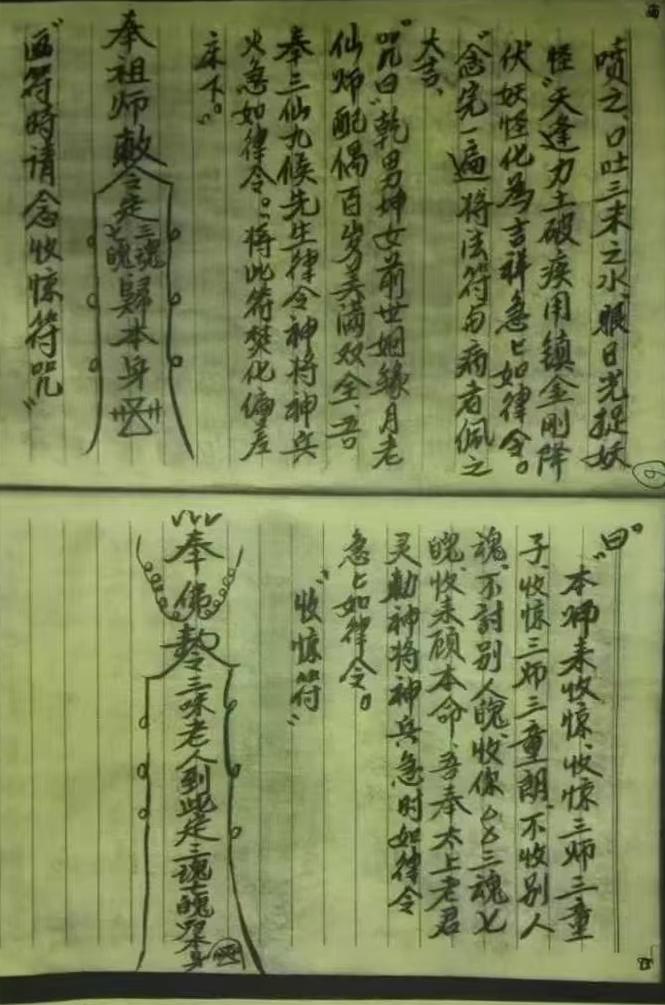 喷之、口吐三末之水、眼日光捉妖
怪“天逢力士破疾用镇金刚降
伏妖怪化為吉祥急ヒ如律令。
“念完一遍将法符与病者佩之
大吉、
咒曰“乾男坤女前世姻缘月老
仙师配偶百岁美满双全、吾
奉三仙九候先生律令神将神兵
火急如律令。“将此符焚化偏差
床下。”
奉祖师敕令走三魂
七魄歸本身
“画符時请念收惊符咒”
“曰”
本师来收惊、收惊三师三童
子、收惊三师三童朗、不收别人
魂、不討别人魄、收保厶厶三魂七
魄、收来顾本命、吾奉太上老君
灵勅神将神兵急时如律令
急ヒ如律令。
“收惊符”
奉佛勅令三味老人到此走三魂七魄